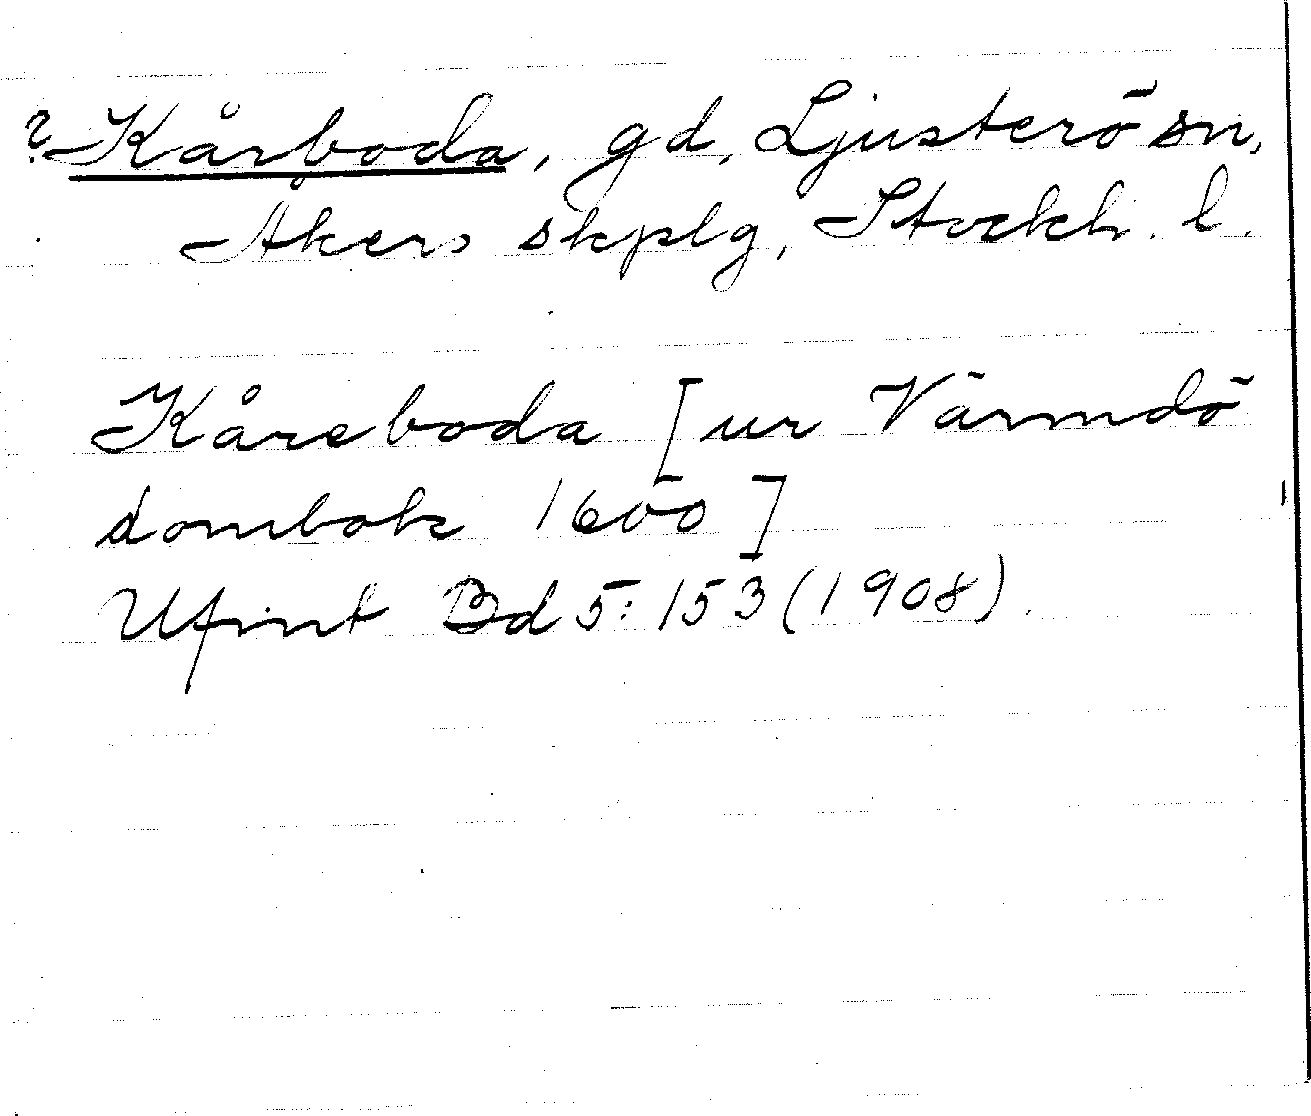 ? Kårboda, gd, Ljusterö sn,
Åkers skplg, Stockh. l.
Kåreboda [ur Värmdö
dombok 1600]
Ufmt Bd 5: 153 (1908).